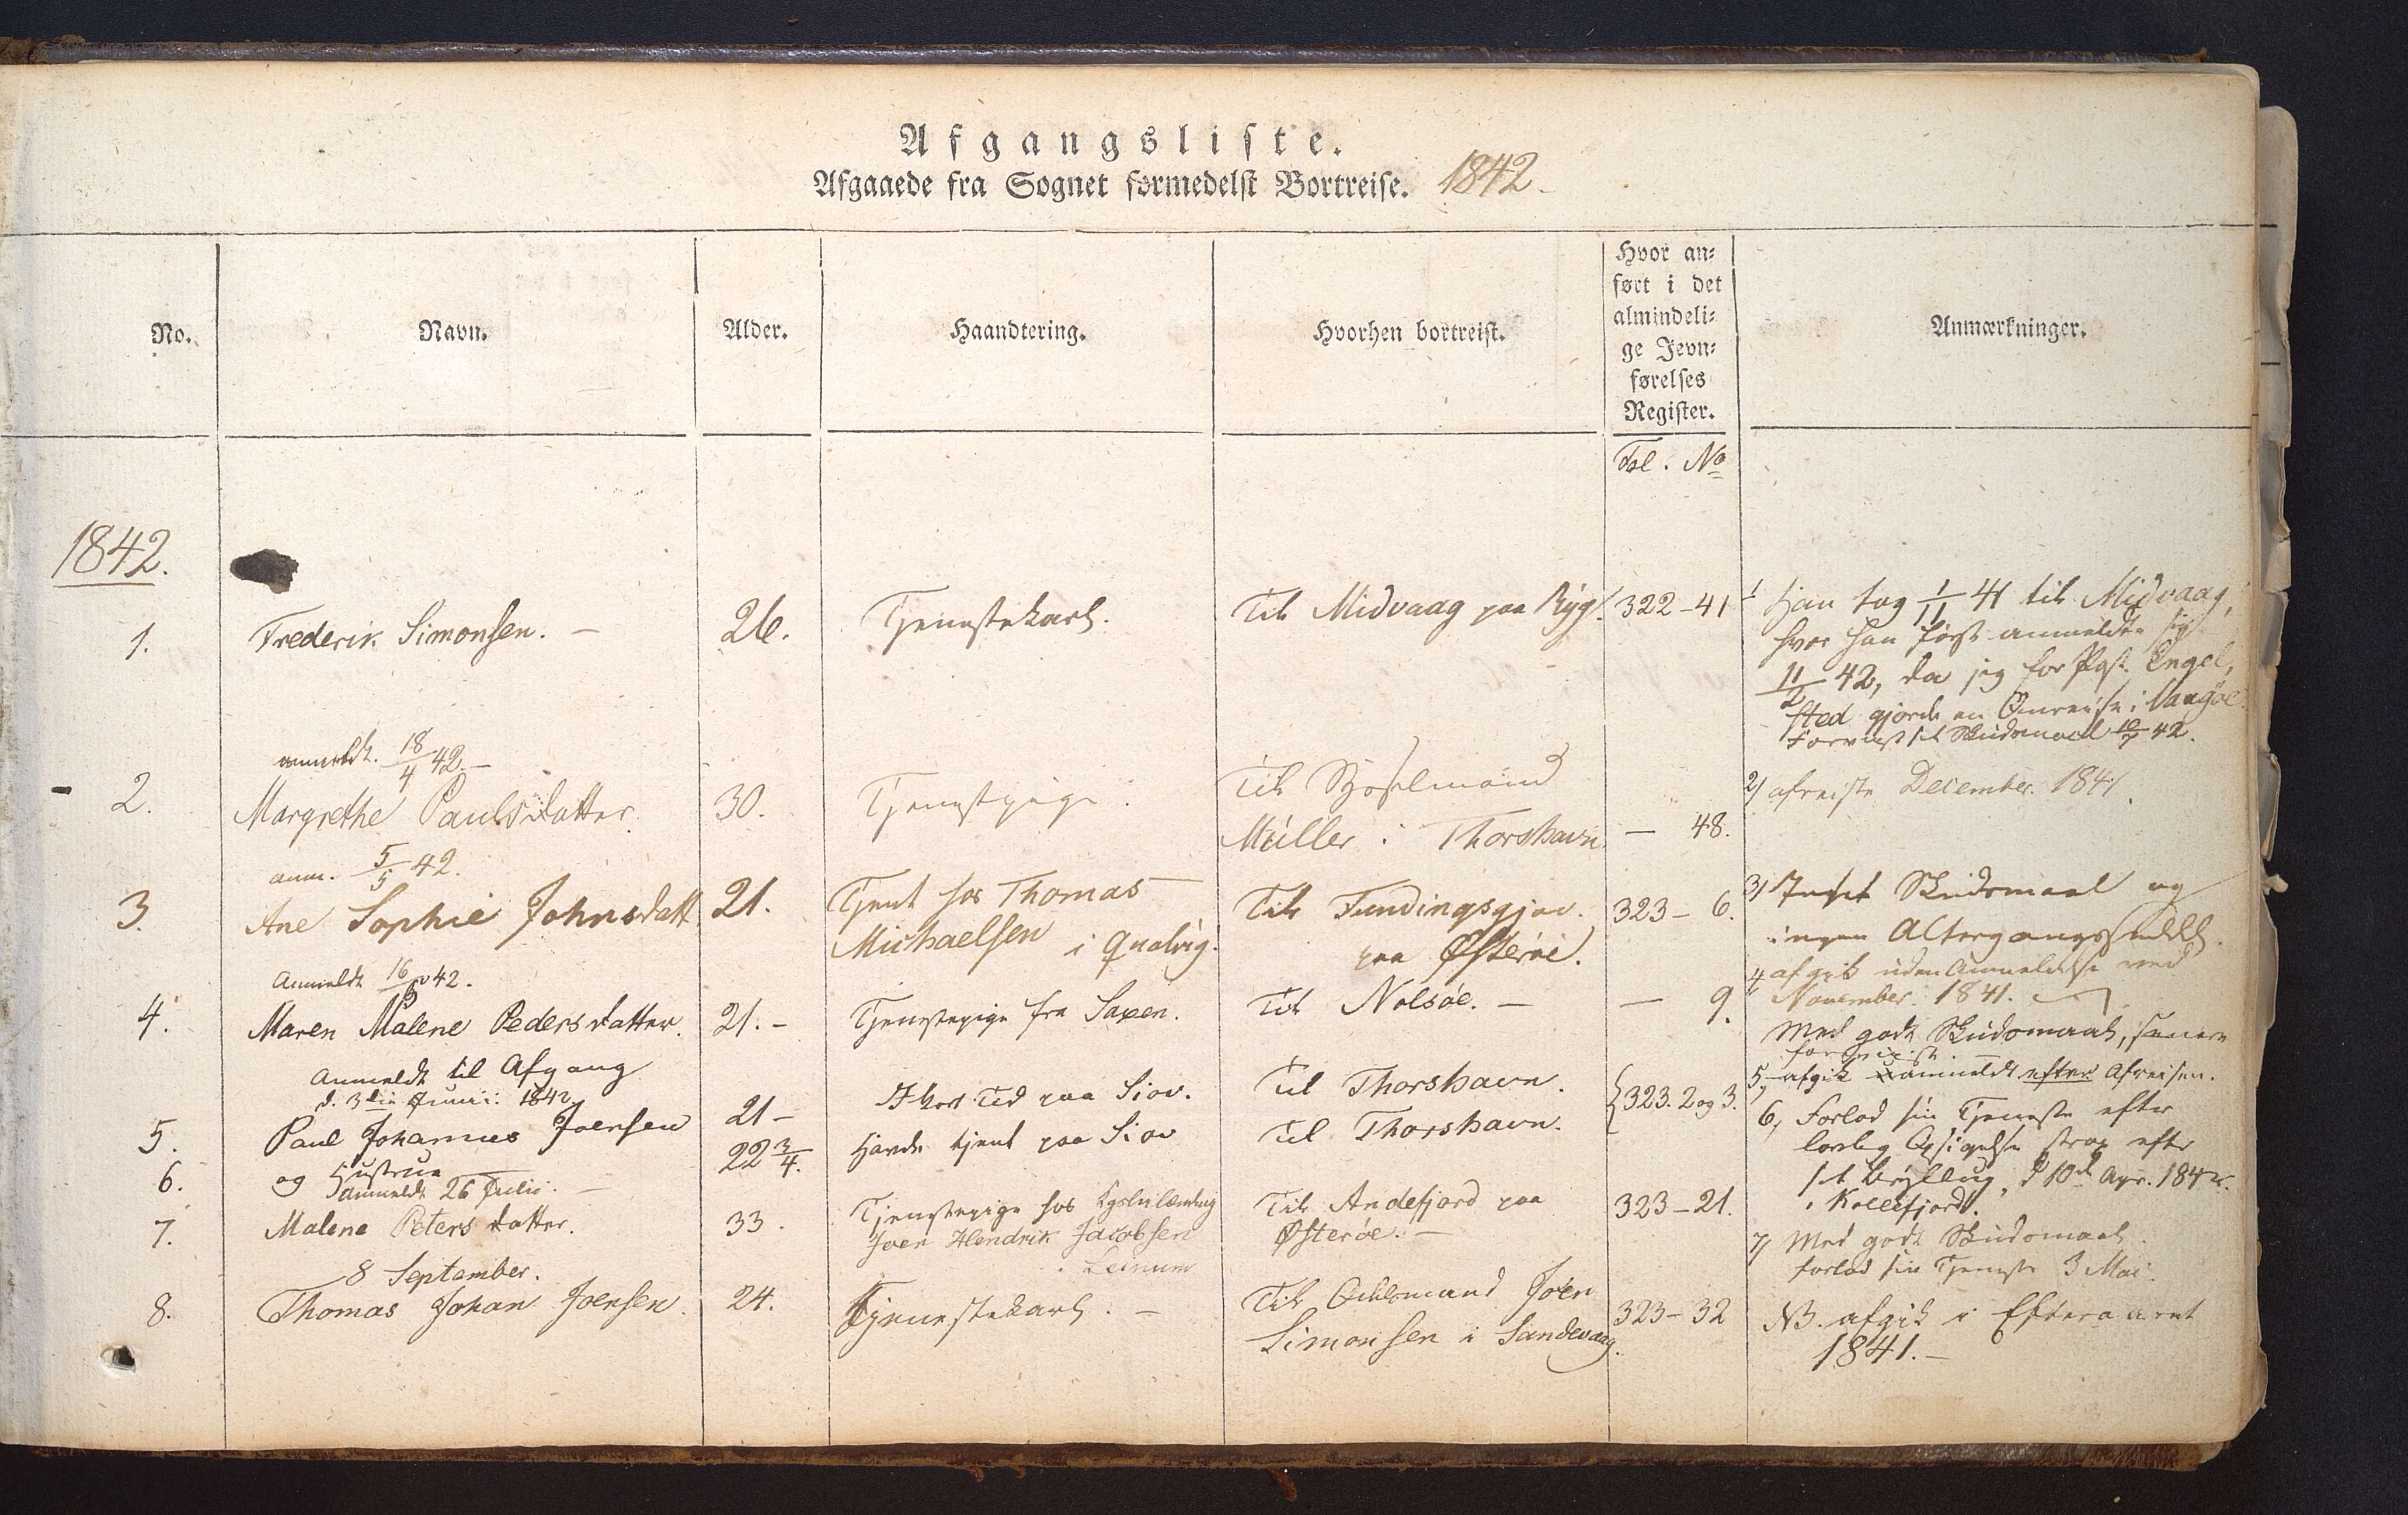 Afgangsliste.
Afgaaede fra Sognet formedelst Bortreise. 1842
No.
Navn.
Alder.
Haandtering.
Hvorhen bortreist.
Hvor an-
ført i det
almindeli-
ge Jevn-
førelses
Register.
Anmærkninger.
Fol. No
1842.
1.
Frederik Simonsen. –
26.
Tjenestekarl.
Til Midvaag paa
322 – 41
1 Han tog 1/11 41 til Midvaag,
hvor han først anmeldte sig
11/2 42, da jeg for Pgst. Engel,
sted gjorde en Omreise i Vaagöe.
Skudsmaal 10/7 42.
anmeldt. 18/4 42. –
2.
Margrethe Paulsdatter.
30.
Tjenestpige.
Til Sysselmand
Müller i Thorshavn.
– 48.
2) afreiste December 1841.
anm. 5/5 42.
3.
Ane Sophie Johnsdatt.
21.
Tjent hos Thomas
Michaelsen i Qualvig.
Til Fundingsgjov.
paa Østerøe.
323 – 6.
3) Intet Skudsmaal og
ingen Altergangsseddel.
Anmeldt 16/5 42.
4.
Maren Malene Pedersdatter.
21. –
Tjenestepige fra Saxen.
Til Nolsöe. –
– 9.
4, afgik uden Anmeldelse ved
November 1841.
Med godt Skudsmaal, senere
Anmeldt til Afgang
d. 3die Junii. 1842
5.
Paul Johannes Joensen
21 –
kort Tid paa Siov.
Til Thorshavn.
323. 2 og 3.
5, afgik anmeldt efter Afreisen.
6.
og Hustrue
22 3/4.
Havde tjent paa Siov
Til Thorshavn.
6, Forlod sin Tjeneste efter
lovlig Opsigelse strax efter
sit Bryllup, d 10de Apr. 1842.
i Kollefjord.
anmeldt 26 Julii. –
7.
Malene Petersdatter.
33.
Tjenestepige hos
Joen Hendrik Jacobsen
i Leinum
Til Andefjord paa
Østerøe. –
323 – 21.
7) Med godt Skudsmaal.
forlod sin Tjeneste 3 Mai.
8 September.
8.
Thomas Johan Joensen.
24.
Tjenestekarl. –
Til Odelsmand Joen
Simonsen i Sandevaag.
323 – 32
NB. afgik i Efteraaret
1841. –